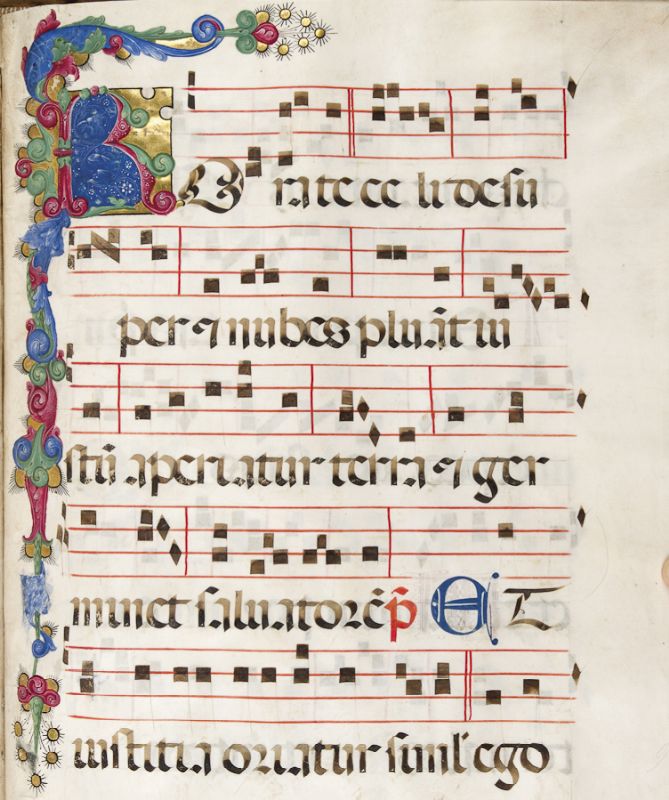 RO rate celi desu
per ⁊ nubes pluāt iu
stū aperiatur terra ⁊ ger
minet saluatorē p̄ ET
iustitia oriatur siml' ego